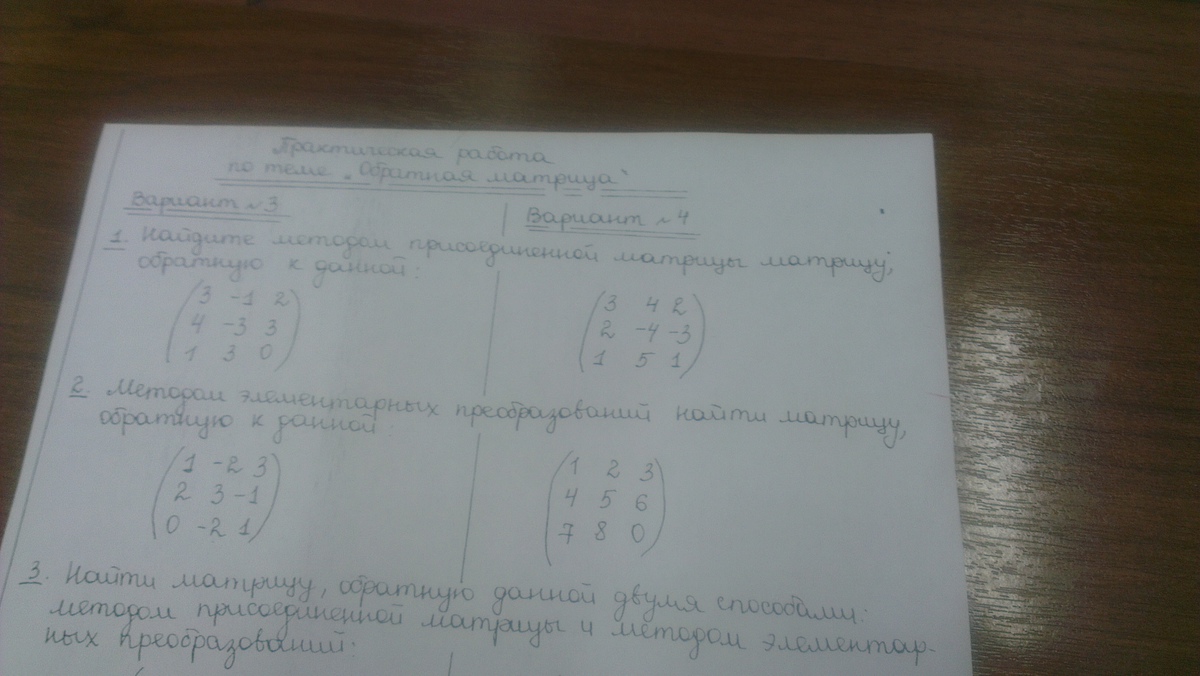 Практическая работа
по теме „Обратная матрица“
Вариант №3
Вариант №4
1. Найдите методом присоединенной матрицы матрицу,
обратную к данной:
3 -1 2
4 -3 3
1 3 0
3 4 2
2 -4 -3
1 5 1
2. Методом элементарных преобразований найти матрицу,
обратную к данной:
1 -2 3
2 3 -1
0 -2 1
1 2 3
4 5 6
7 8 0
3. Найти матрицу, обратную данной двумя способами:
методом присоединенной матрицы и методом элементар-
ных преобразований: